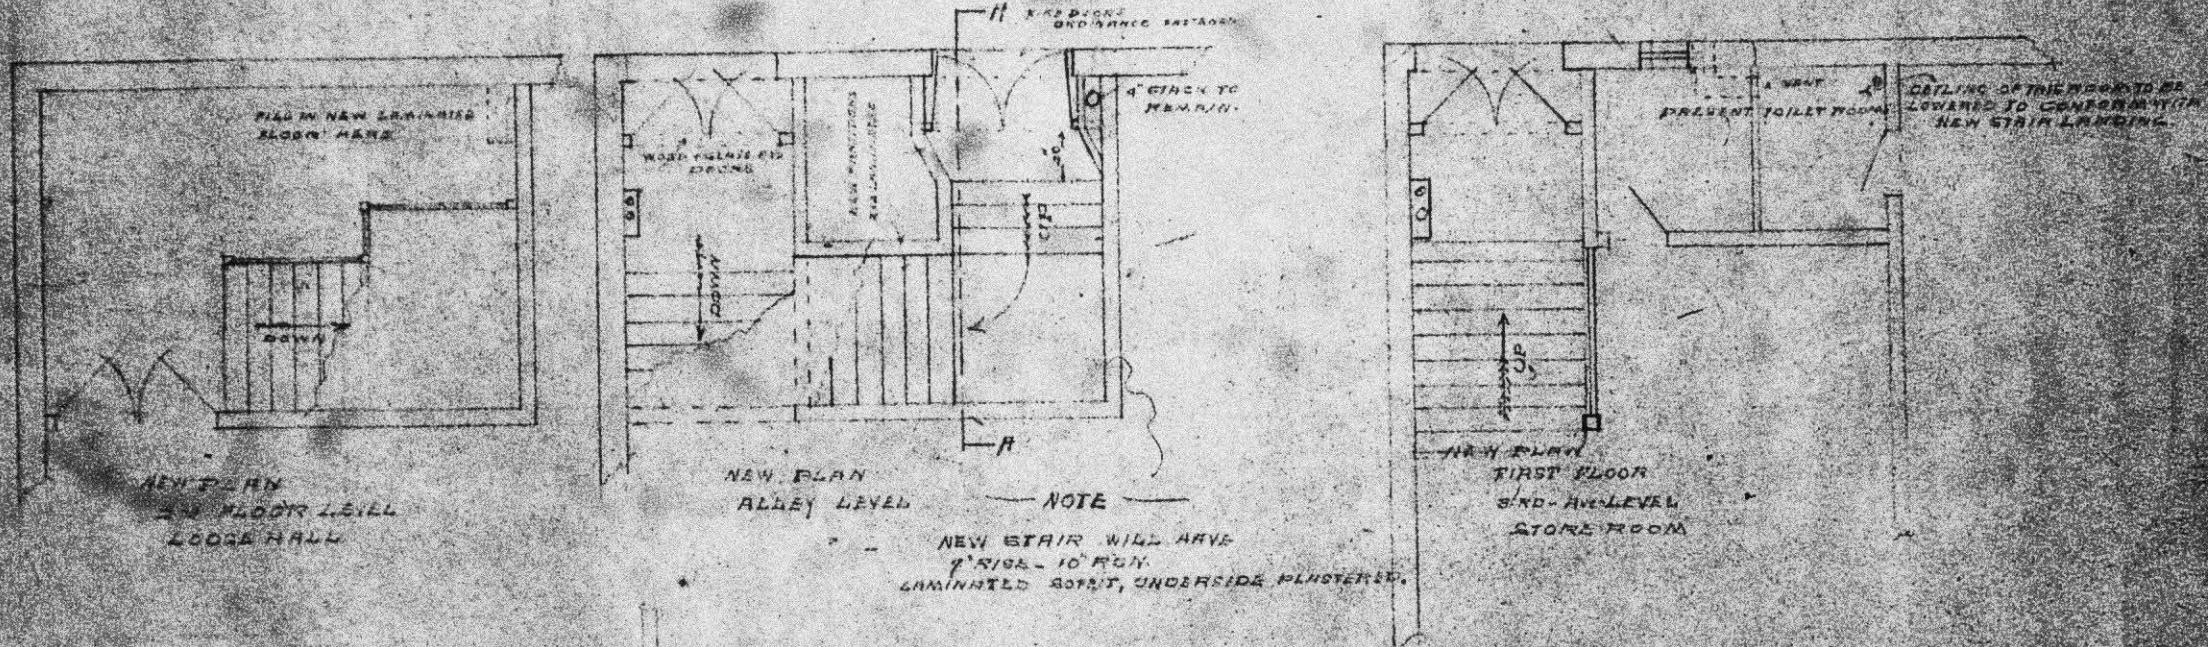 FILL IN NEW LAMINATED
FLOOR HERE
DOWN
NEW PLAN
2ND FLOOR LEVEL
LODGE HALL
A
ORDINANCE
WOOD & GLASS
DOORS
NEW PARTITIONS
4" STACK TO
REMAIN.
UP
DOWN
A
NEW PLAN
ALLEY LEVEL
NOTE
NEW STAIR WILL HAVE
7" RISE - 10" RUN.
LAMINATED SOFFIT, UNDERSIDE PLASTERED.
VENT
PRESENT TOILET ROOMS
CEILING OF THIS ROOM TO BE
LOWERED TO CONFORM WITH
NEW STAIR LANDING.
UP
NEW PLAN
FIRST FLOOR
3RD-AVE-LEVEL
STORE ROOM